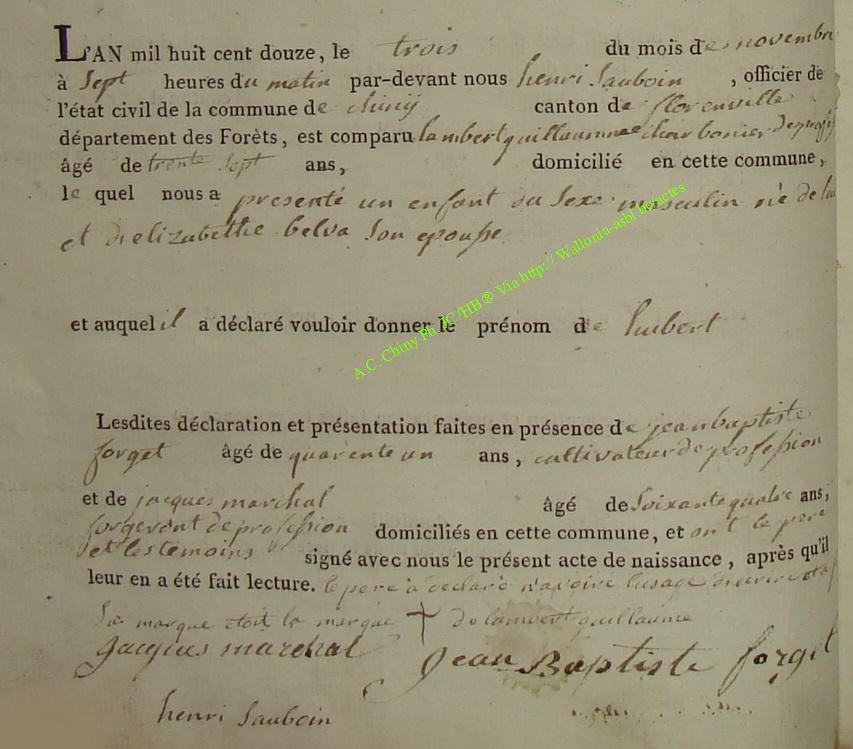 L'AN mil huit cent douze, le trois du mois de novembre
à Sept heures du matin par-devant nous henri Sauboin , officier de
l'état civil de la commune de chiny canton de florenville
département des Forêts, est comparu lambert guillaumme charbonier de
âgé de trente Sept ans, domicilié en cette commune,
le quel nous a presenté un enfant du Sexe masculin né de lui
et d'elizabethe belva Son epouse
et auquel il a déclaré vouloir donner le prénom de hubert
Lesdites déclaration et présentation faites en présence de jean baptiste
forget âgé de quarente un ans, cultivateur de profession
et de jacques marchal âgé de Soixante quatre ans,
forgeront de profession domiciliés en cette commune, et ont le pere
et les temoins signé avec nous le présent acte de naissance, après qu'il
leur en a été fait lecture. le pere à declaré n'avoire l'usage
Sa marque etoit la marque de lambert guillaume
jacques marchal Jean Baptiste forget
henri Sauboin
A.C. Chiny Ph.JC /HB® Via http:// Wallonia-asbl.be/actes